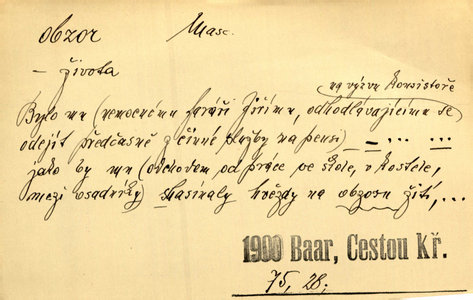 obzor Masc.
– života
na výzvu konsistoře
Bylo mu (nemocnému faráři Jiřímu, odhodlávajícímu se
odejít předčasně z činné služby na pensi) – ... ...
jako by mu (odchodem od práce ve škole, v kostele,
mezi osadníky) shasínaly hvězdy na obzoru žití, ...
1900 Baar, Cestou Kř.
75, 28;